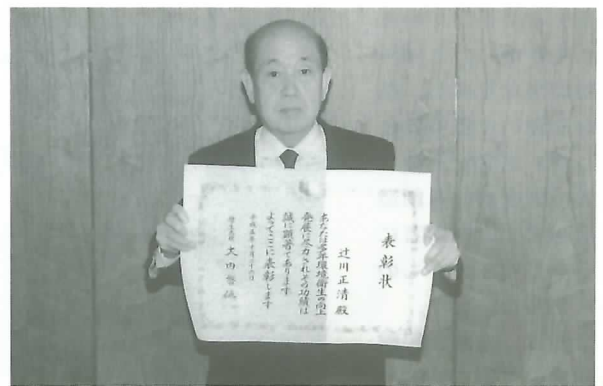 表彰状
辻川正清殿
あなたは多年環境衛生の向上
発展に尽力されその功績は
誠に顕著であります
よってここに表彰します
平成五年十月二十六日
厚生大臣 大内啓伍